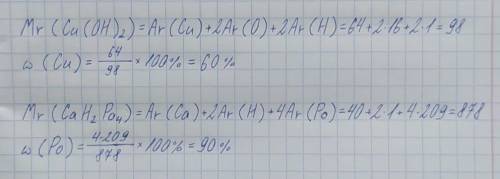 Mr (Cu(OH)₂) = Ar(Cu)+2Ar(O)+2Ar(H)=64+2·16+2·1=98
ω (Cu) = 64/98 × 100% = 60%
Mr (CaH₂Po₄)=Ar(Ca)+2Ar(H)+4Ar(Po)=40+2·1+4·209=878
ω (Po) = 4·209/878 × 100% = 90%